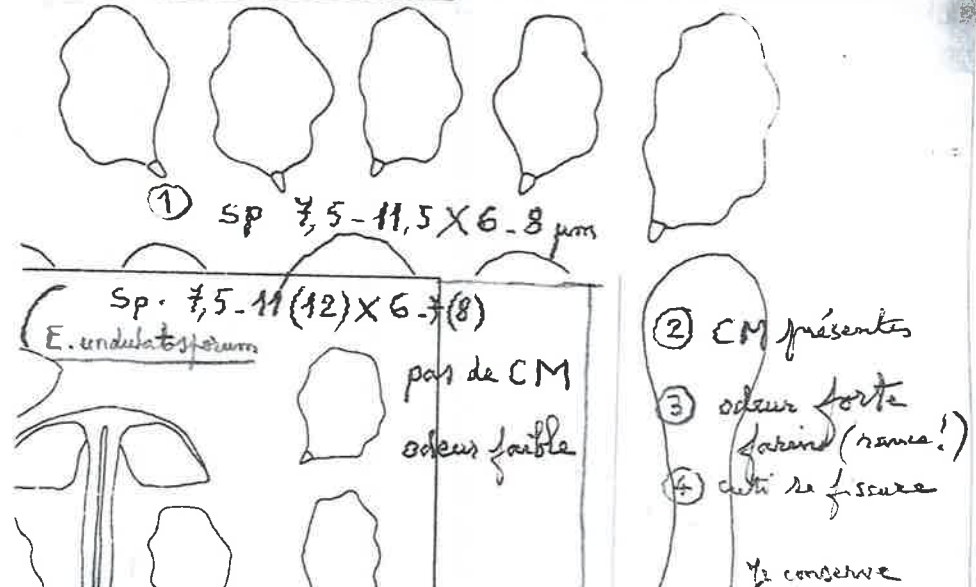 ① Sp 7,5-11,5 X 6-8 µm
Sp. 7,5-11(12) X 6-7(8)
E. undulatosporum
pas de CM
odeur faible
② CM présentes
③ odeur forte
farine (rance!)
④ cuti se fissure
conserve